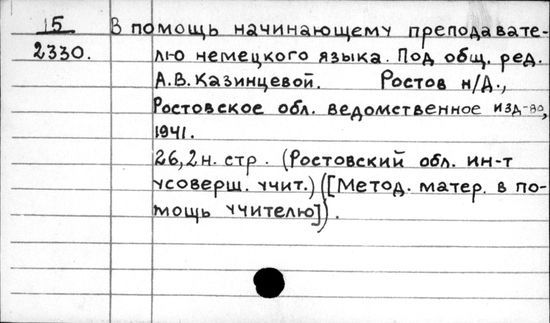 15 В помощь начинающему преподавате-
2330. лю немецкого языка. Под общ. ред.
А.В. Казинцевой. Ростов н/Д.,
Ростовское обл. ведомственное изд-во,
1941.
26,2н. стр. (Ростовский обл. ин-т
усоверш. учит.) ([Метод. матер. в по-
мощь учителю]).